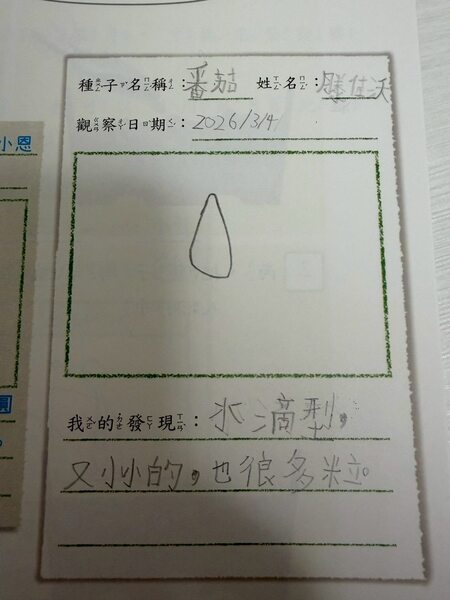 種子名稱：番茄 姓名：滕佳沃
觀察日期：2026/3/4
小恩
我的發現：水滴型，
又小小的，也很多粒。